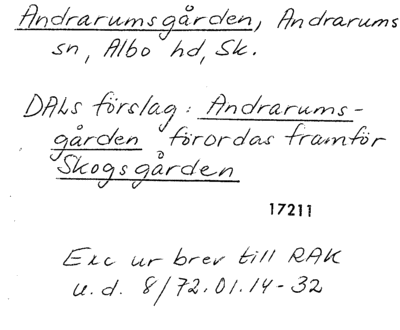 Andrarumsgården, Andrarums
sn, Albo hd, Sk.
DALs förslag: Andrarums-
gården förordas framför
Skogsgården
17211
Exc ur brev till RAK
u.d. 8/72.01.14-32